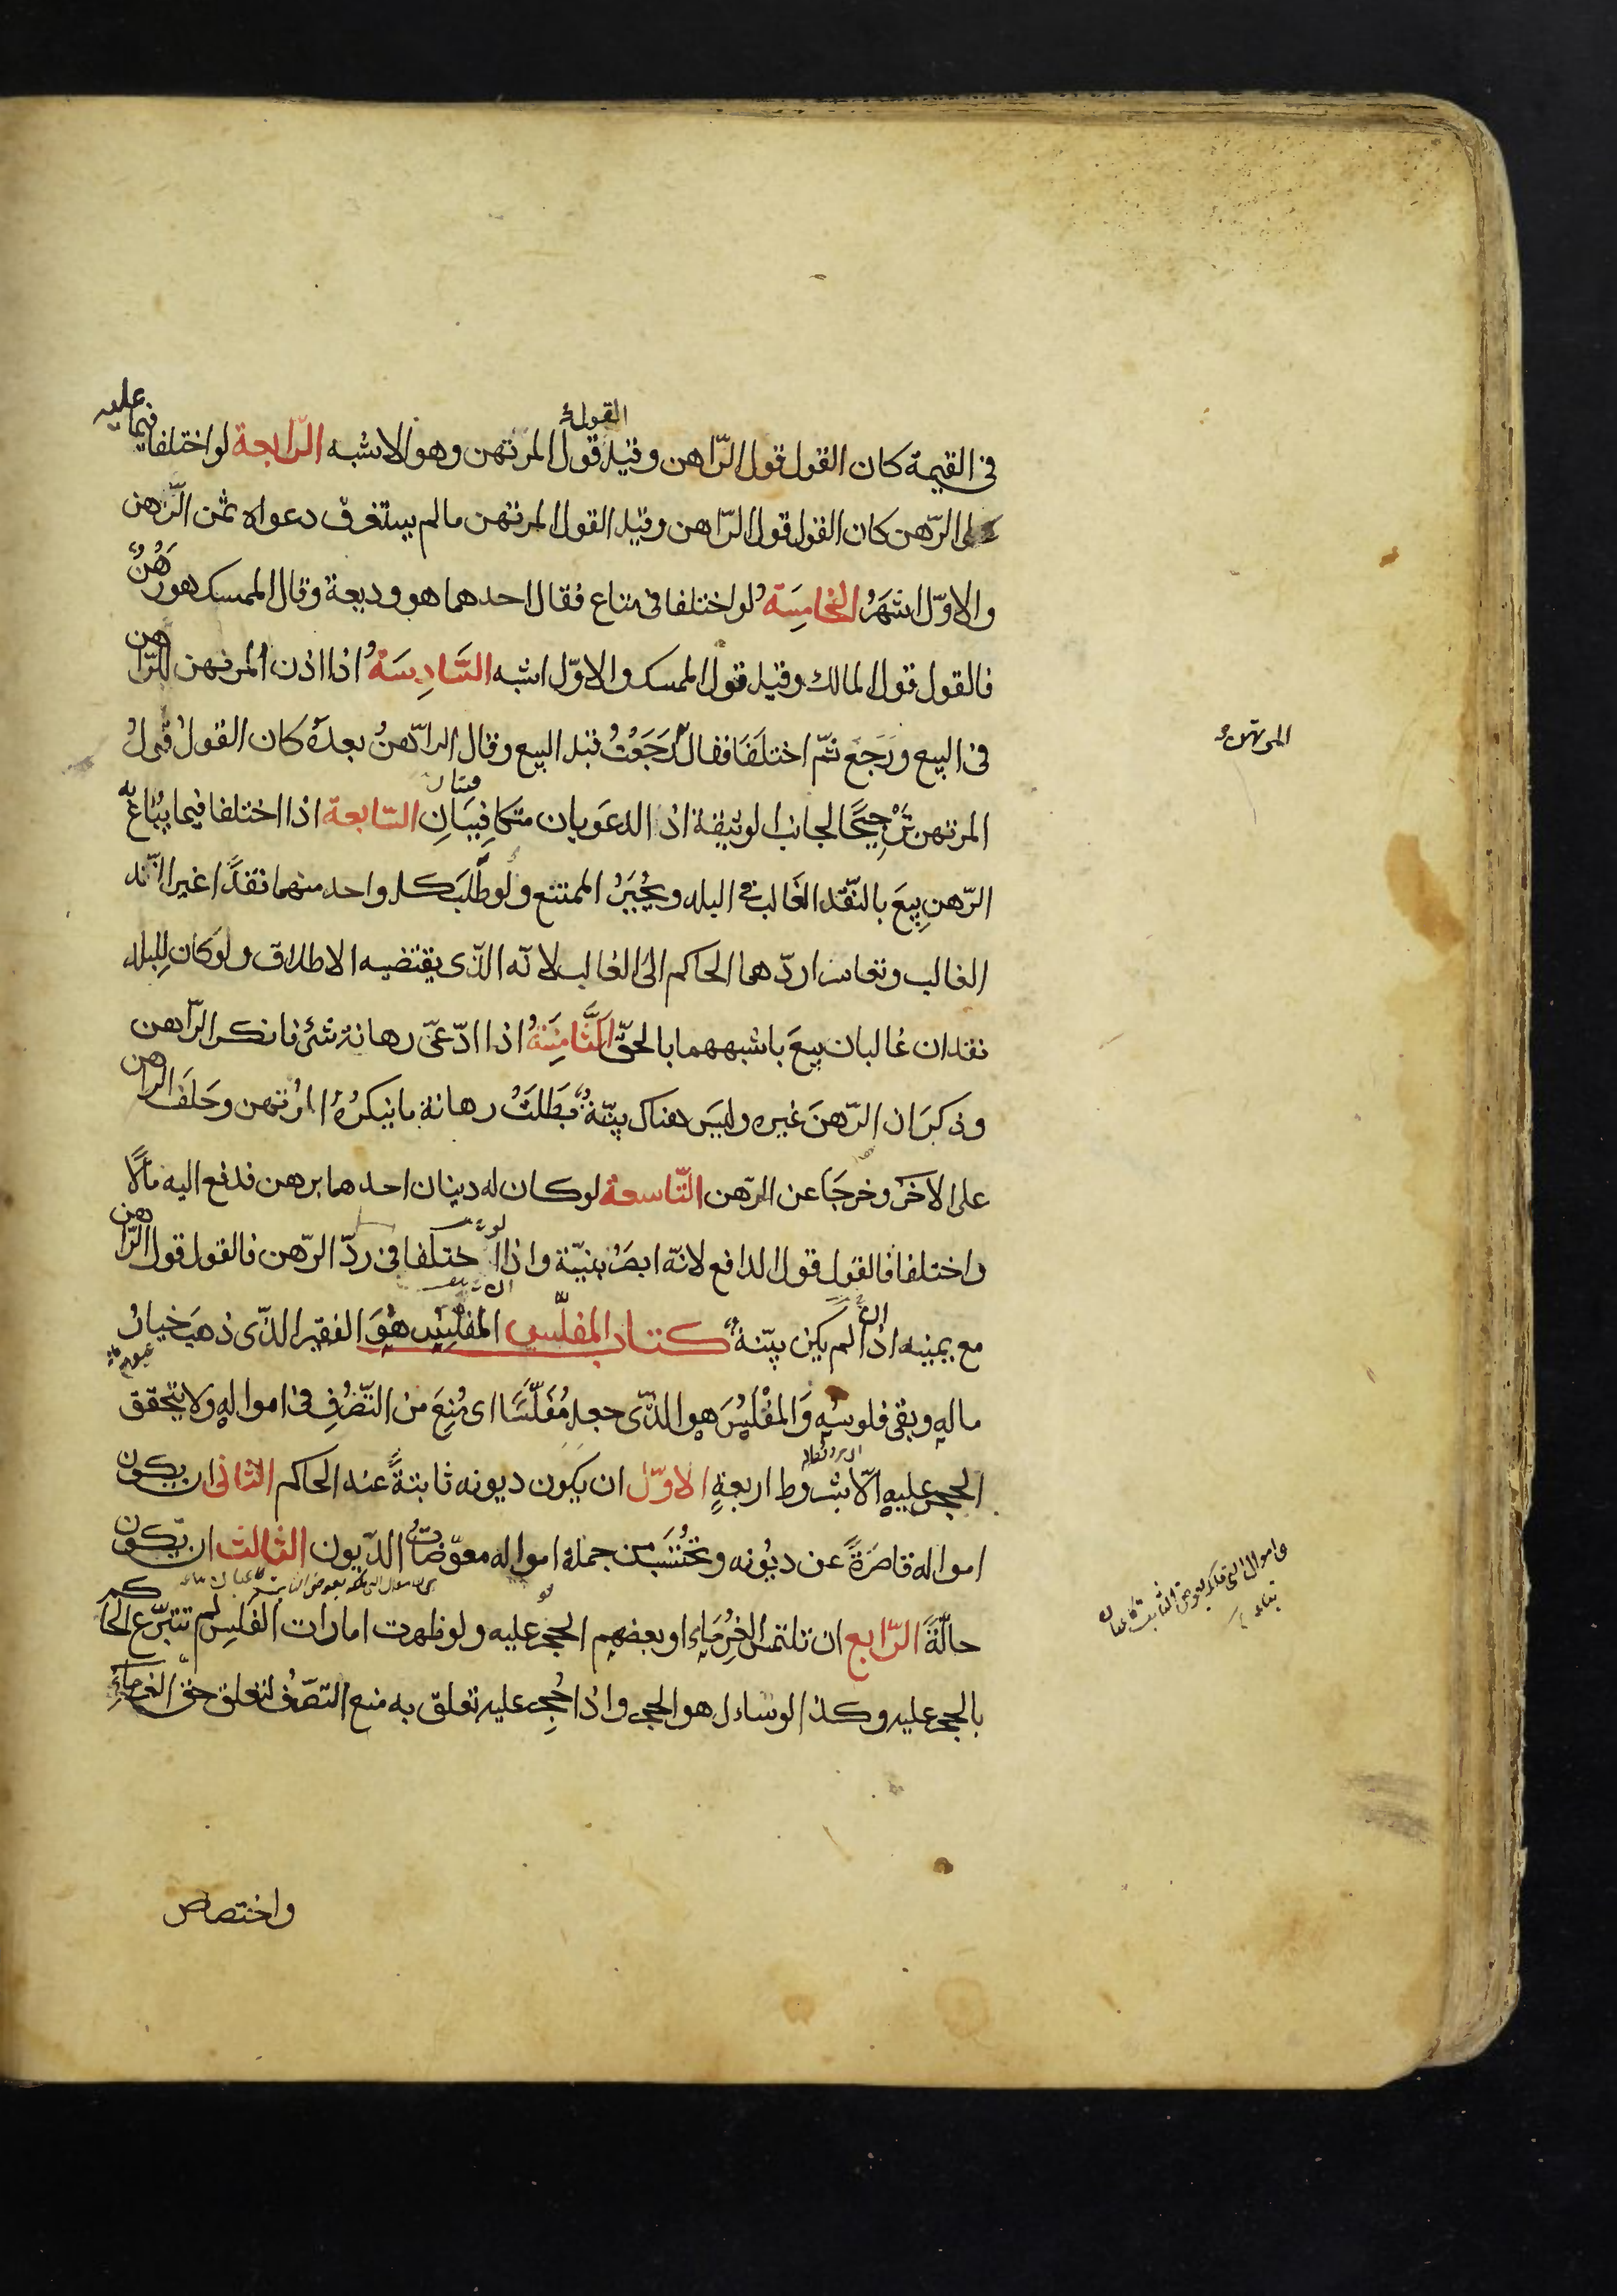 فى القيمة كان القول قول الرّاهن وقيل القول قول المرتهن وهو الاشبه الرّابعة لو اختلفا فيما عليه
على الرّهن كان القول قول الرّاهن وقيل القول المرتهن مالم يستغرق دعواه ثمن الرّهن
والاوّل اشهَرُ الخامِسَة لو اختلفا فى متاع فقال احدهما هو وديعة وقال الممسك هو رَهُنٌ
فالقول قول المالك وقيل قول الممسك والاوّل اشبه السَّادِسَةُ اذا اذن المرتهن للرّاهن
فى البيع ورَجَع ثمّ اختلَفَا فقال رَجَعْتُ قبل البيع وقال الرّاهنُ بعدَهُ كان القولُ قولُ
المرتهن
المرتهن تَرْجِيحًا لجانب الوثيقة اذ الدعَويان متكافِيَانِ السّابعة اذا اختلفا فيما يُبَاعُ به
الرّهنِ بِيعَ بالنّقد الغَالب فى البلد ويُجْبَرُ الممتنع ولو طَلَبَ كل واحد منهما نقدًا غير النّقد
الغالب وتعاسرا ردّهما الحاكم الى الغالب لانّه الذّى يقتضيه الاطلاق ولو كان لِلبلد
نقدان غالبان بيعَ باشبههما بالحقّ الثَّامِنَةُ اذا ادّعىّ رهانة شئ فانكر الرّاهن
وذكرَ ان الرّهنَ غيره وليسَ هناك بيّنةٌ بَطَلَتْ رهانة ما ينكرُهُ المرتهن وحَلَفَ الراهن
على الاخَر وخرجَا عن الرّهن التّاسعة لو كان له دينان احدهما برهن فدفع اليه مالًا
واختلفا فالقول قول الدافع لانّه ابصَرُ بنيّته واذا اختلفا فى ردّ الرّهن فالقول قول الرّاهن
مع يمينه اذا لم يكن بيّنةٌ كتاب المفلّس المُفْلِسْ هُوَ الفقير الذّى ذهبَ خيارُ
مالهِ وبقى فلوسُهِ وَالمُفَلِّسُ هو الذّى جعل مُفَلّسًا اى مُنِعَ من التّصّرُفِ فى اموالِهِ ولا يتحقق
الحجر عليه الّا بشروط اربعةٍ الاوّل ان يكون ديونه ثابتةً عند الحاكم الثّانى ان يكون
امواله قاصَرَةً عن ديُونه وتحْتسَب من جملة امواله معوّضات الدّيون الثالث ان تكون
حالّةً الرّابع ان تلتمس الغُرمَاء او بعضهم الحجر عليه ولو ظهرت امارات الفَلِس لم تتبرّع الحاكم
بالحجر عليه وكذا لو سال هو الحجر واذا حُجِر عليه تعلّق به منع التصّرف لتعلق حق الغرماءُ
واختصاص